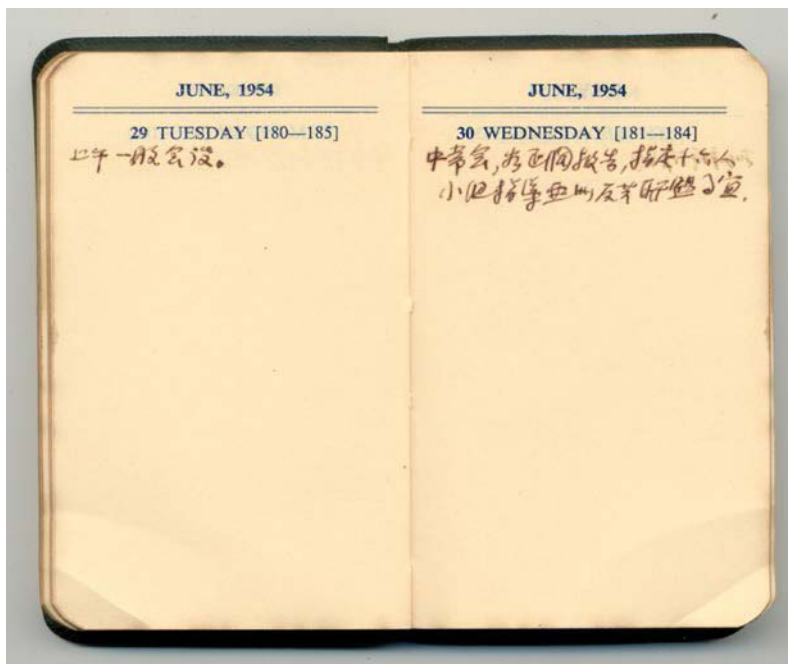 JUNE, 1954
29 TUESDAY [180—185]
上午一般会议。
JUNE, 1954
30 WEDNESDAY [181—184]
中常会,谷正纲报告,指定十六人
小组指导亚洲反共联盟事宜.